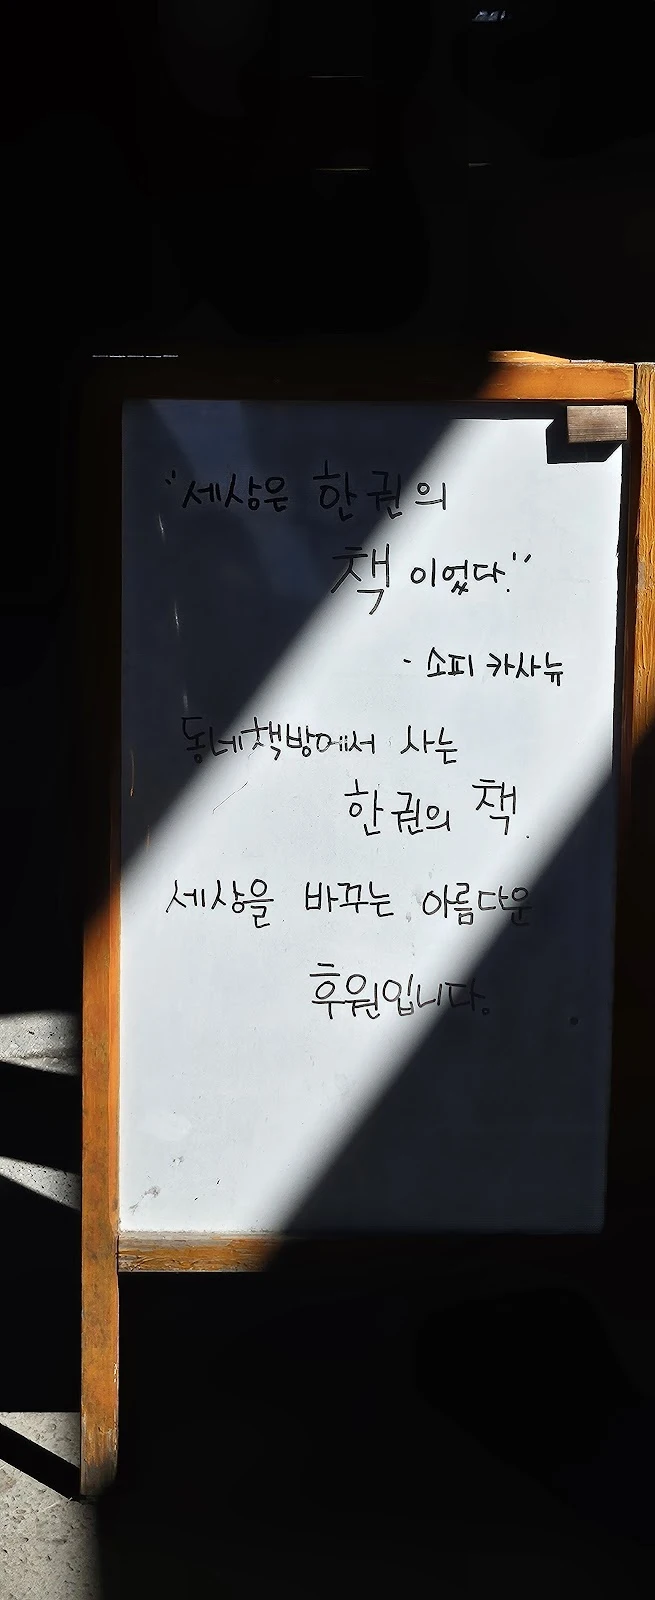 "세상은 한 권의
책이었다."
- 소피 카사뉴
동네책방에서 사는
한 권의 책.
세상을 바꾸는 아름다운
후원입니다.